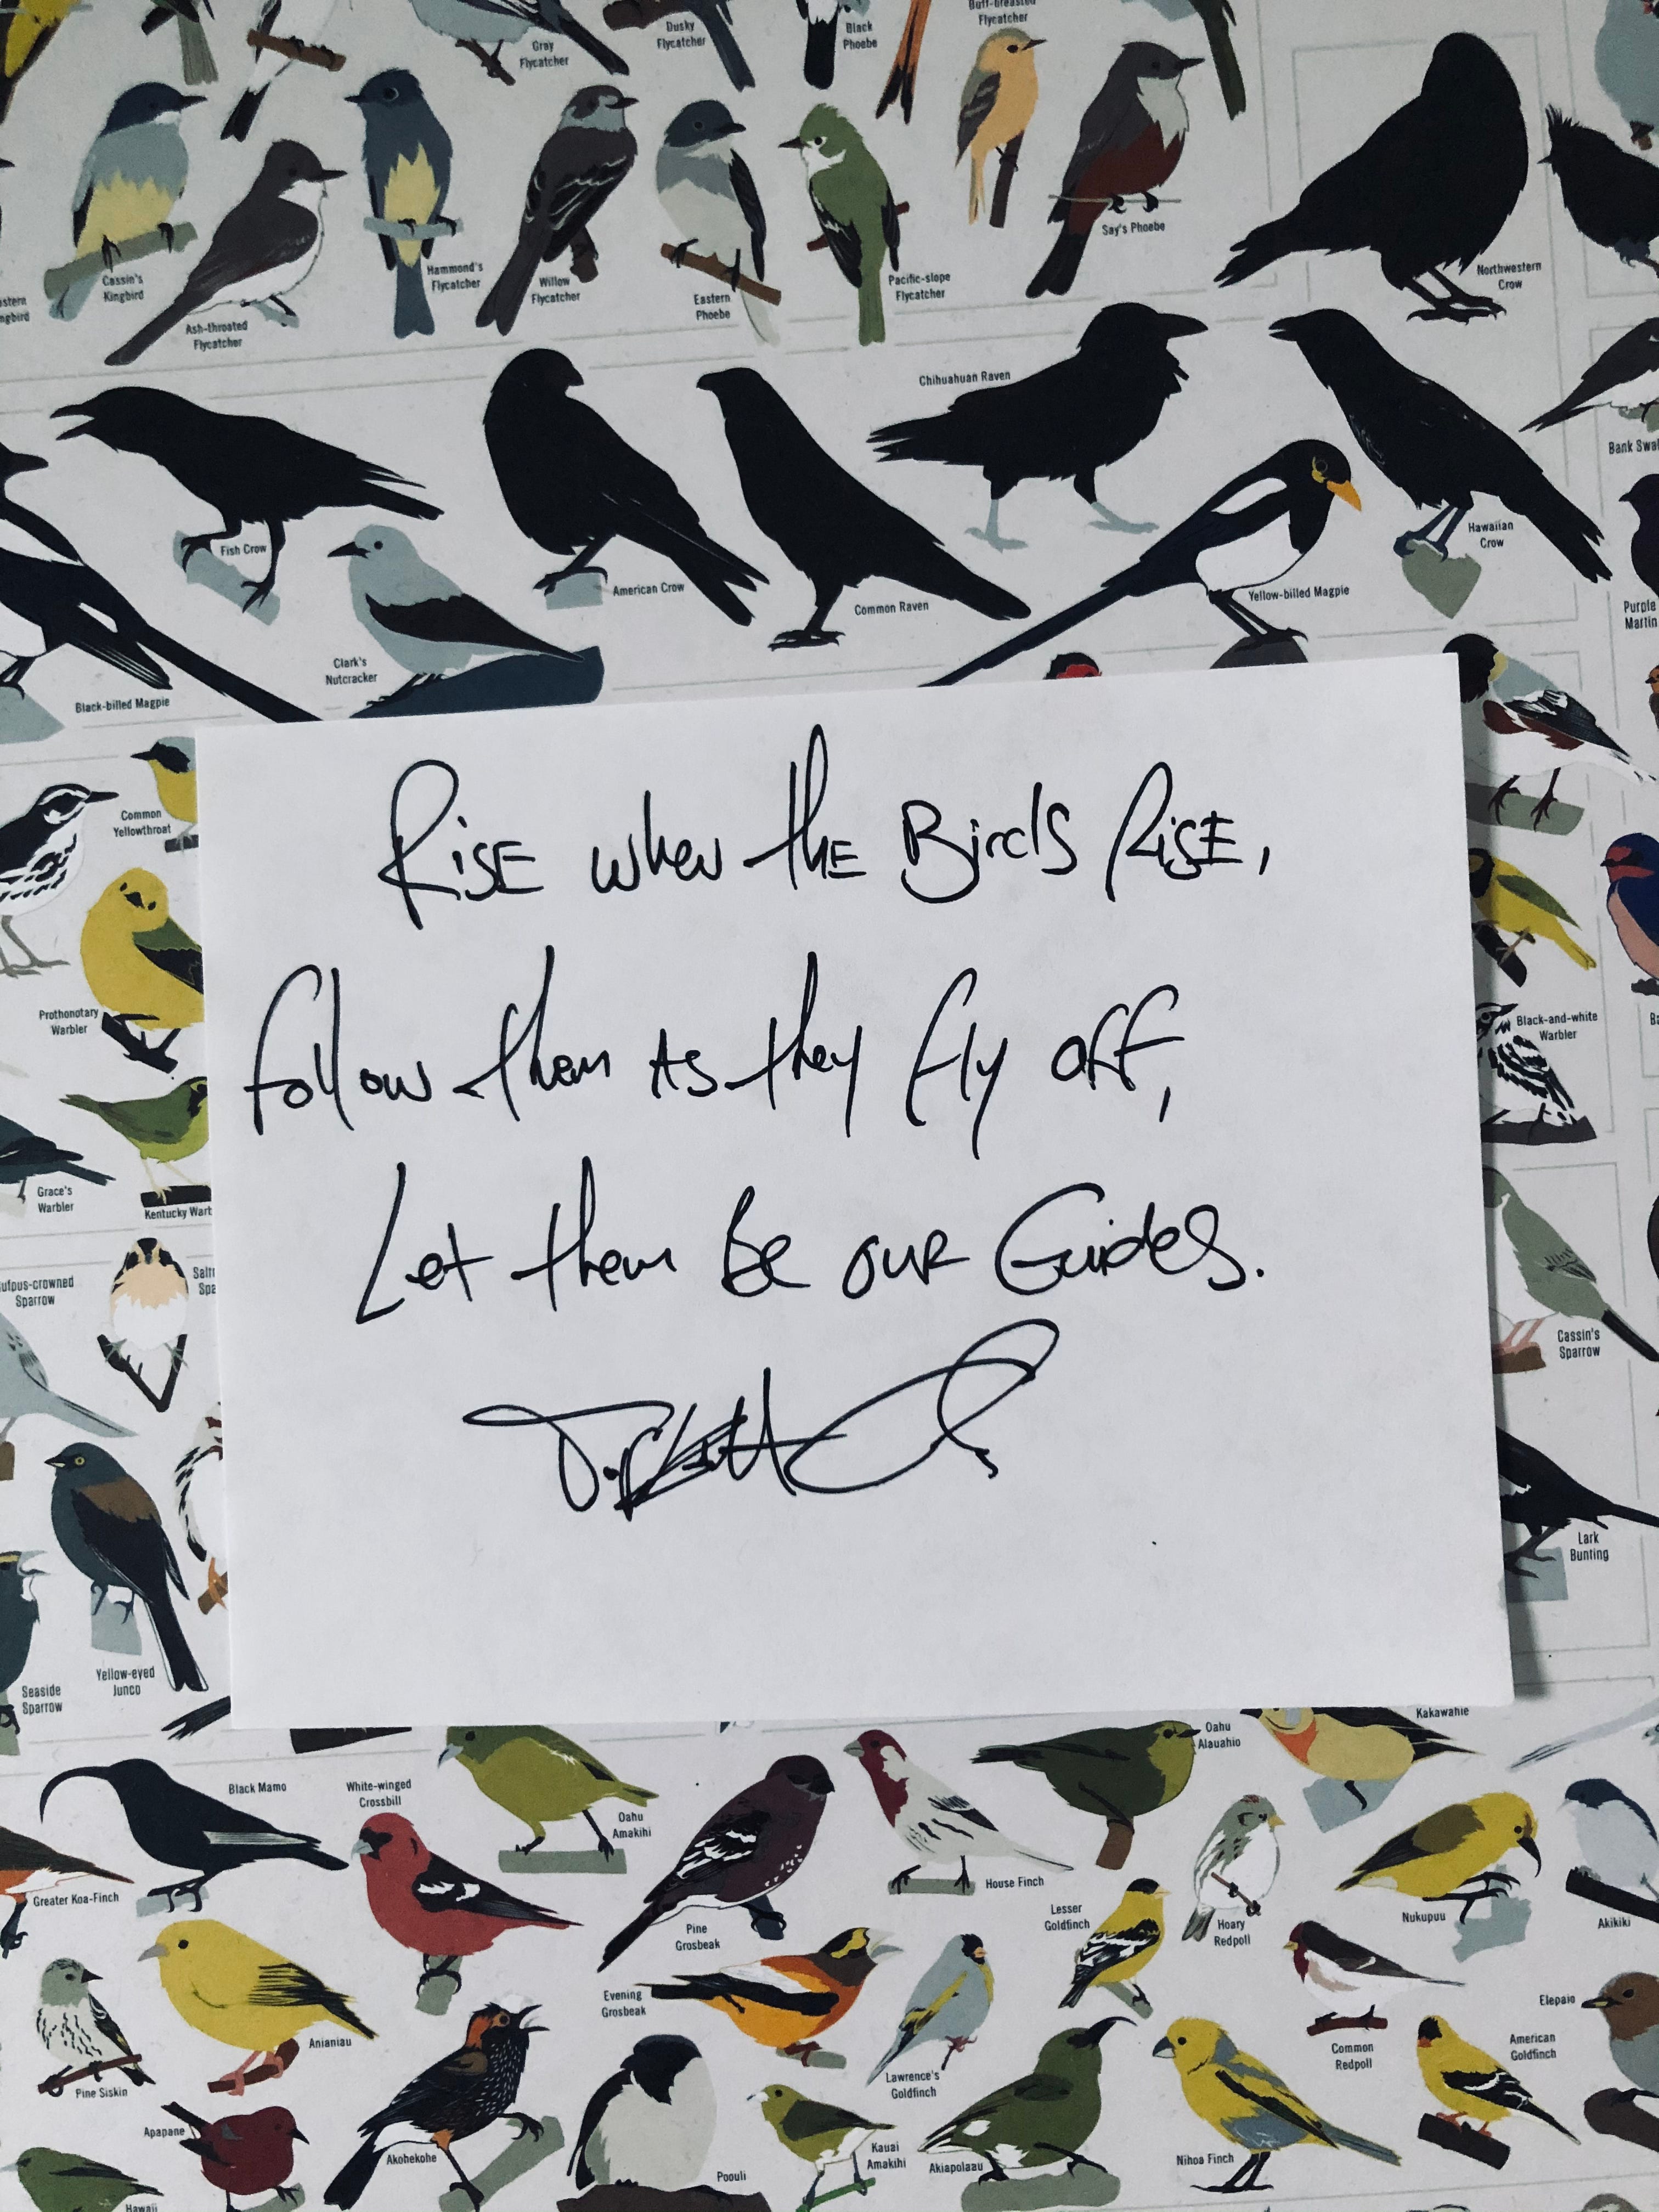 Buff-breasted
Flycatcher
Dusky
Flycatcher
Black
Phoebe
Gray
Flycatcher
Say's Phoebe
Cassin's
Kingbird
Hammond's
Flycatcher
Willow
Flycatcher
Eastern
Phoebe
Pacific-slope
Flycatcher
Northwestern
Crow
Ash-throated
Flycatcher
Chihuahuan Raven
Bank Swal
Fish Crow
American Crow
Common Raven
Yellow-billed Magpie
Hawaiian
Crow
Purple
Martin
Clark's
Nutcracker
Black-billed Magpie
Common
Yellowthroat
Rise when the Birds Rise,
follow them as they fly off,
Let them Be our Guides.
Prothonotary
Warbler
Black-and-white
Warbler
Grace's
Warbler
Kentucky Warb
ufous-crowned
Sparrow
Salt
Spa
Cassin's
Sparrow
Lark
Bunting
Yellow-eyed
Junco
Seaside
Sparrow
Kakawahie
Oahu
Alauahio
Black Mamo
White-winged
Crossbill
Oahu
Amakihi
Greater Koa-Finch
House Finch
Pine
Grosbeak
Lesser
Goldfinch
Hoary
Redpoll
Nukupuu
Akikiki
Evening
Grosbeak
Anianiau
Elepaio
Common
Redpoll
American
Goldfinch
Lawrence's
Goldfinch
Pine Siskin
Apapane
Akohekohe
Poouli
Kauai
Amakihi
Akiapolaau
Nihoa Finch
Hawaii